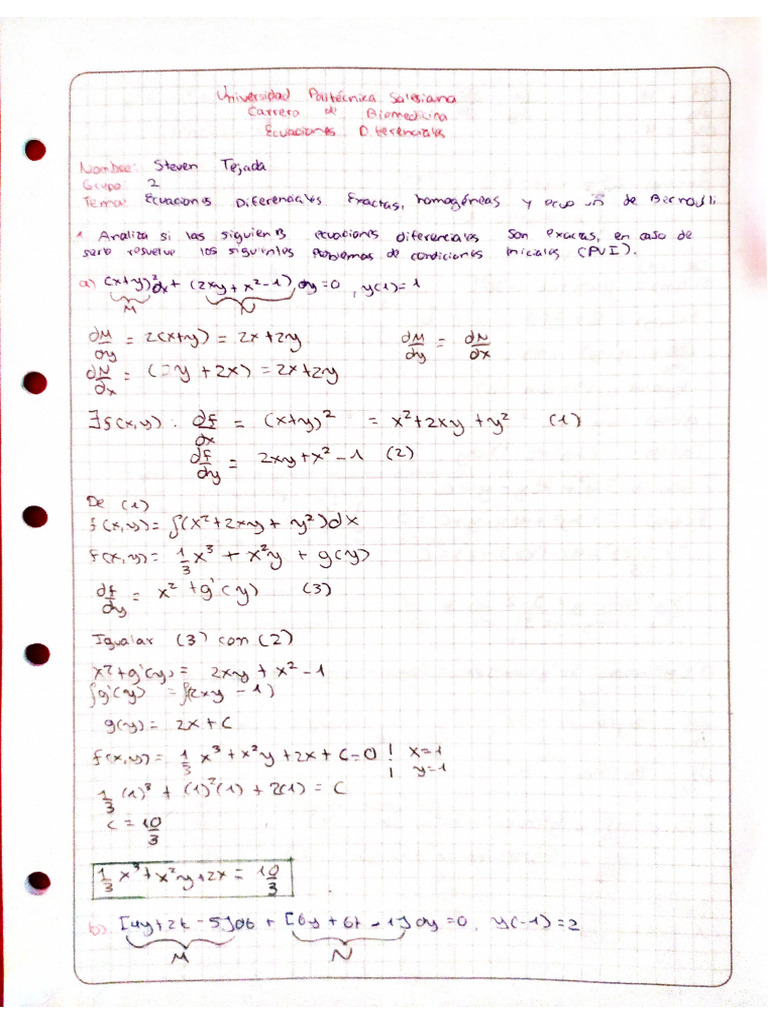 Universidad Politécnica Salesiana
Carrera de Biomedicina
Ecuaciones Diferenciales
Nombre: Steven Tejada
Grupo: 2
Tema: Ecuaciones Diferenciales Exactas, homogéneas y de Bernoulli
1. Analiza si las siguientes ecuaciones diferenciales son exactas, en caso de
serlo resuelve los siguientes problemas de condiciones iniciales (PVI).
a) (x+y)²dx + (2xy + x² - 1) dy = 0, y(1) = 1
M N
dM/dy = 2(x+y) = 2x + 2y dM/dy = dN/dx
dN/dx = (2y + 2x) = 2x + 2y
∃f(x,y): df/dx = (x+y)² = x² + 2xy + y² (1)
df/dy = 2xy + x² - 1 (2)
De (1)
f(x,y) = ∫(x² + 2xy + y²)dx
f(x,y) = 1/3 x³ + x²y + g(y)
df/dy = x² + g'(y) (3)
Igualar (3) con (2)
x² + g'(y) = 2xy + x² - 1
∫g'(y) = ∫(2xy - 1)
g(y) = 2x + c
f(x,y) = 1/3 x³ + x²y + 2x + c = 0 ¦ x=1
¦ y=1
1/3 (1)³ + (1)²(1) + 2(1) = c
c = 10/3
1/3 x³ + x²y + 2x = 10/3
b) [4y + 2t - 5]dt + [6y + 6t - 1]dy = 0, y(-1) = 2
M N